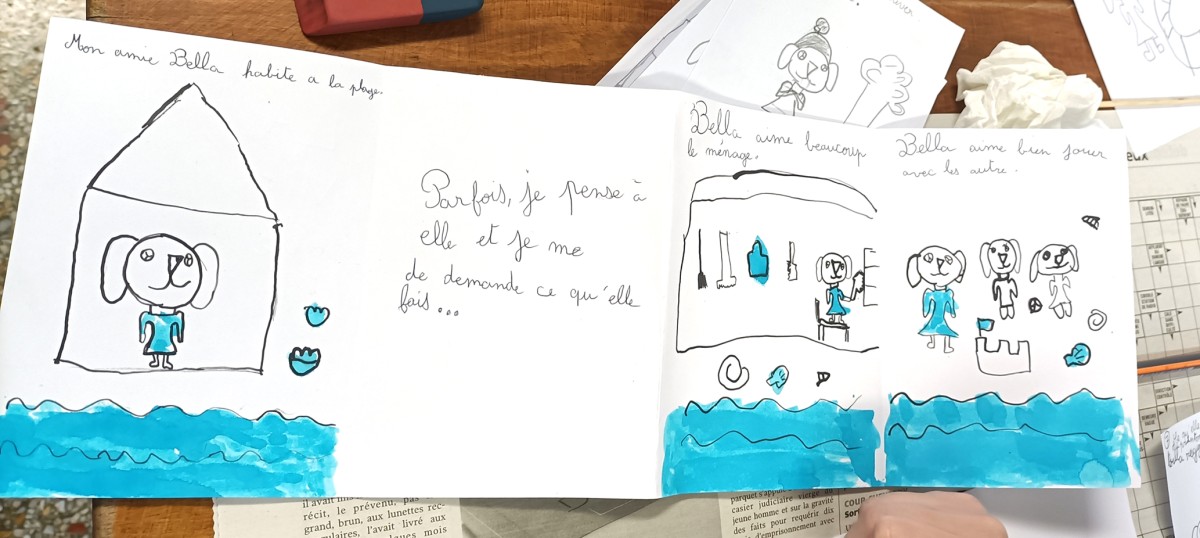 Mon amie Bella habite a la plage.
Parfois, je pense à
elle et je me
de demande ce qu'elle
fais...
Bella aime beaucoup
le ménage.
Bella aime bien jouer
avec les autre.
récit, le prévenu, pas
grand, brun, aux lunettes rec-
l'avait livré aux
mois
casier judiciaire vierge
jeune homme et sur la gravité
des faits pour requérir dix
d'emprisonnement avec